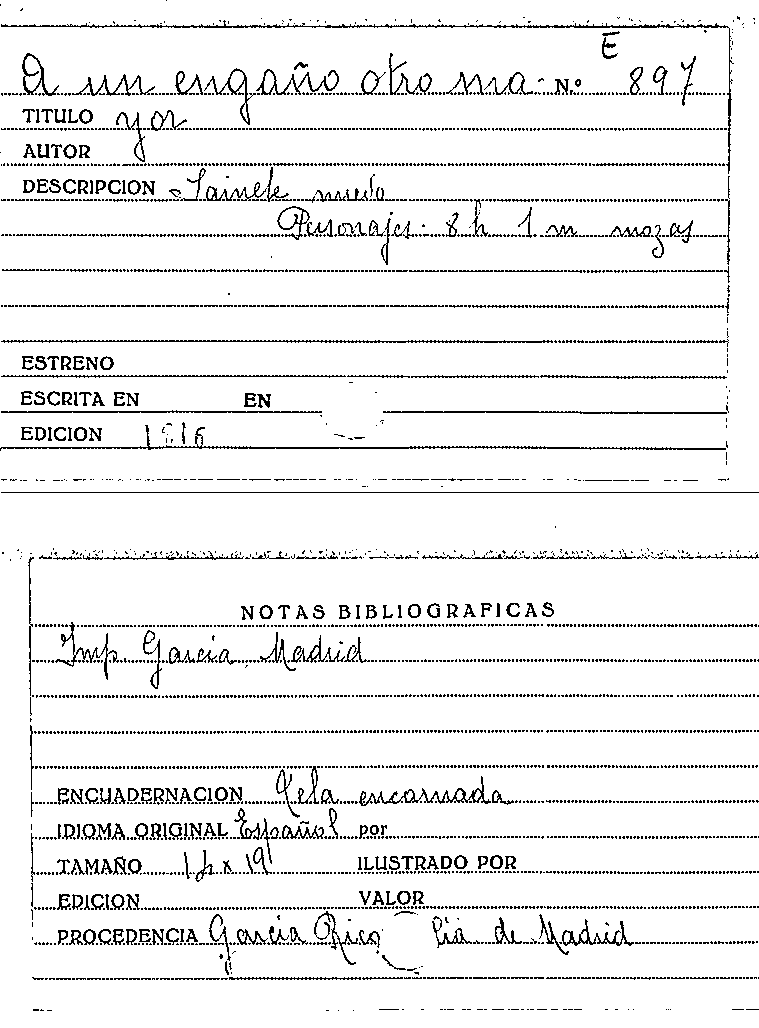 E
A un engaño otro ma- N.º 897
TITULO yor
AUTOR
DESCRIPCION Sainete nuevo
Personajes. 8 h 1 m mozas
ESTRENO
ESCRITA EN EN
EDICION 1816
NOTAS BIBLIOGRAFICAS
Imp. Garcia. Madrid
ENCUADERNACION Tela encarnada
IDIOMA ORIGINAL Español por
TAMAÑO x 19 ILUSTRADO POR
EDICION VALOR
PROCEDENCIA Garcia Rico Cia de Madrid